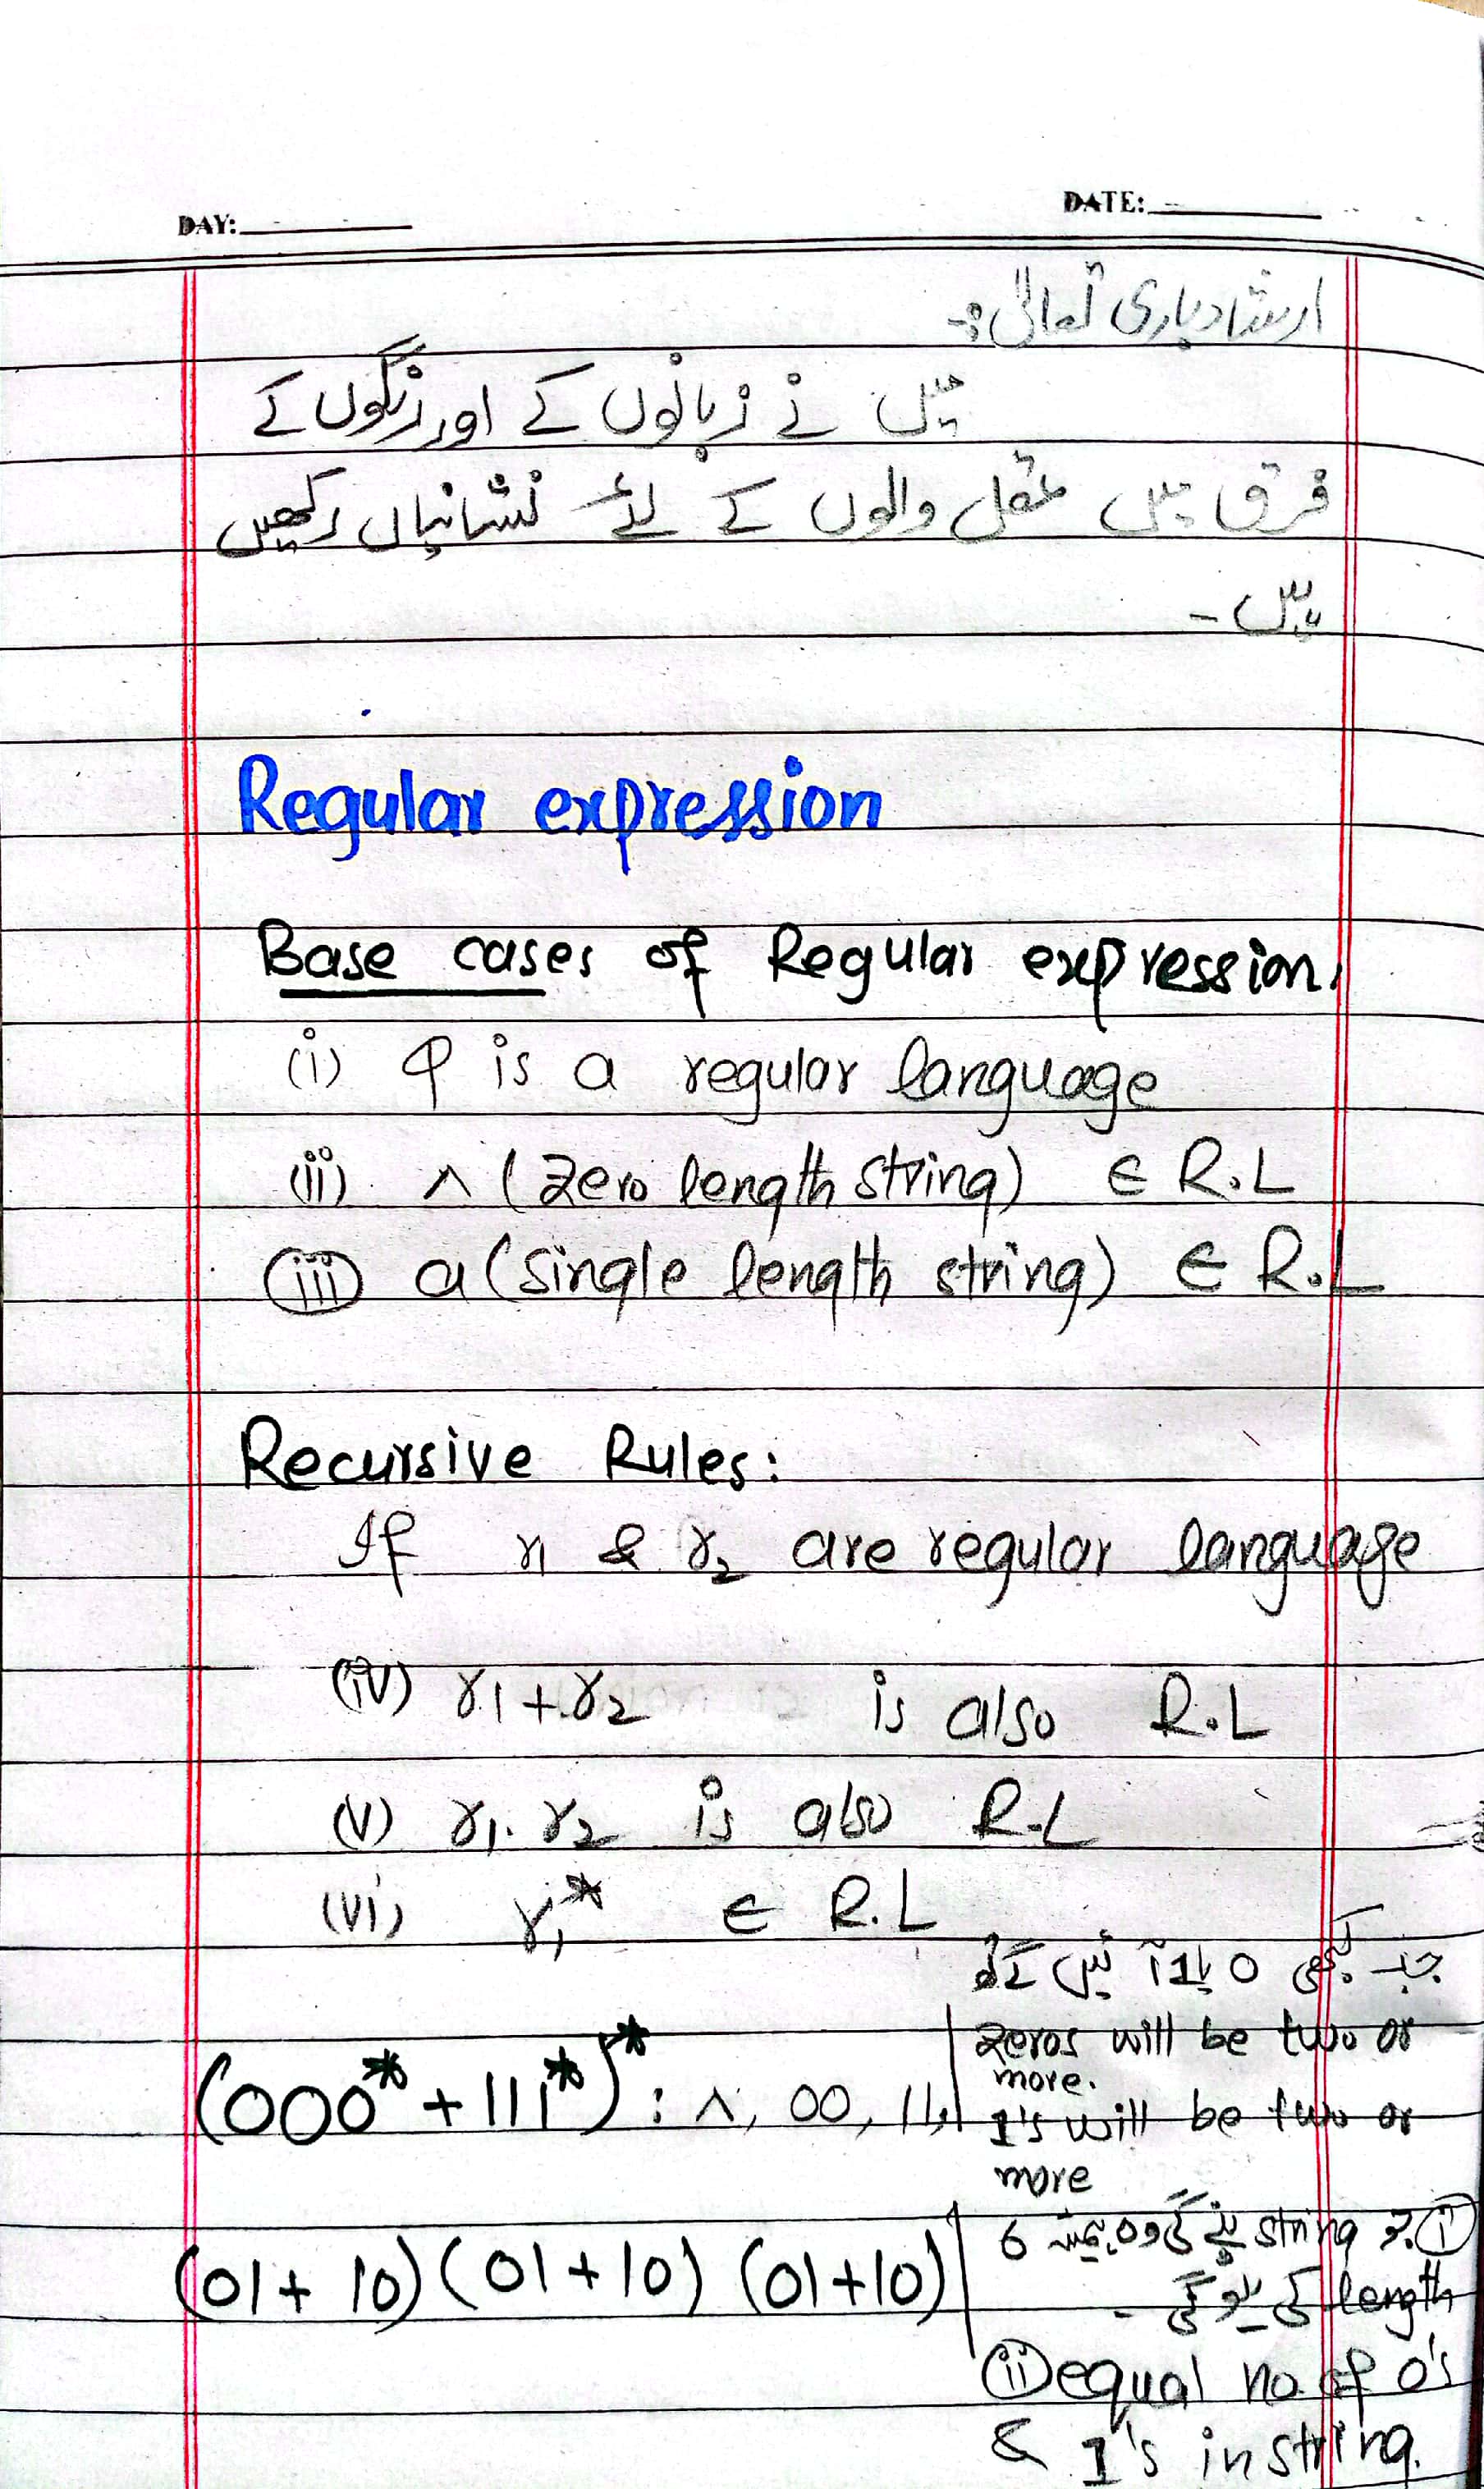 DAY:
DATE:
ارشاد باری تعالیٰ :-
میں نے زبانوں کے اور رنگوں کے
فرق میں عقل والوں کے لئے نشانیاں رکھیں
ہیں -
Regular expression
Base cases of Regular expression.
(i) φ is a regular language
(ii) ∧ (zero length string) ∈ R.L
(iii) a (single length string) ∈ R.L
Recursive Rules:
If r1 & r2 are regular language
(iv) r1 + r2 is also R.L
(v) r1. r2 is also R.L
(vi) r1* ∈ R.L
جب بھی 0 یا 1 آئیں گے تو
(000* + 111*)* : ∧, 00, 11,
zeros will be two or
more.
1's will be two or
more
(01 + 10) (01 + 10) (01 + 10)
(i) جو string بنے گی وہ ہمیشہ 6
length کی ہو گی -
(ii) equal no. of 0's
& 1's in string.